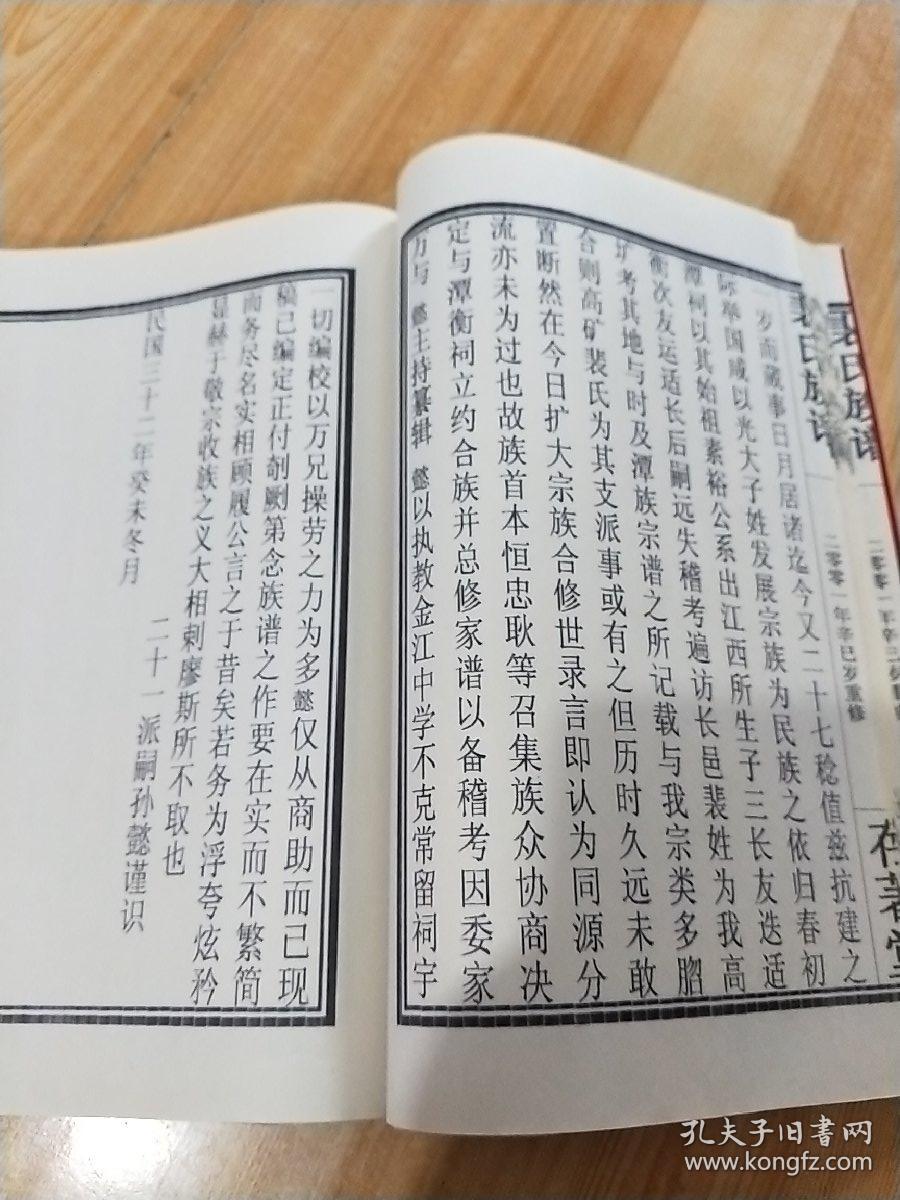 裴氏族谱
二零零一年辛巳岁重修
岁而蒇事日月居诸迄今又二十七稔值兹抗建之
际举国咸以光大子姓发展宗族为民族之依归春初
潭祠以其始祖素裕公系出江西所生子三长友迭适
衡次友运适长后嗣远失稽考遍访长邑裴姓为我高
圹考其地与时及潭族宗谱之所记载与我宗类多脗
合则高圹裴氏为其支派事或有之但历时久远未敢
置断然在今日扩大宗族合修世录言即认为同源分
流亦未为过也故族首本恒忠耿等召集族众协商决
定与潭衡祠立约合族并总修家谱以备稽考因委家
万与懿主持纂辑懿以执教金江中学不克常留祠宇
一切编校以万兄操劳之力为多懿仅从商助而已现
稿已编定正付剞劂第念族谱之作要在实而不繁简
而务尽名实相顾履公言之于昔矣若务为浮夸炫矜
显赫于敬宗收族之义大相剌廖斯所不取也
二十一派嗣孙懿谨识
民国三十二年癸未冬月
孔夫子旧书网
www.kongfz.com